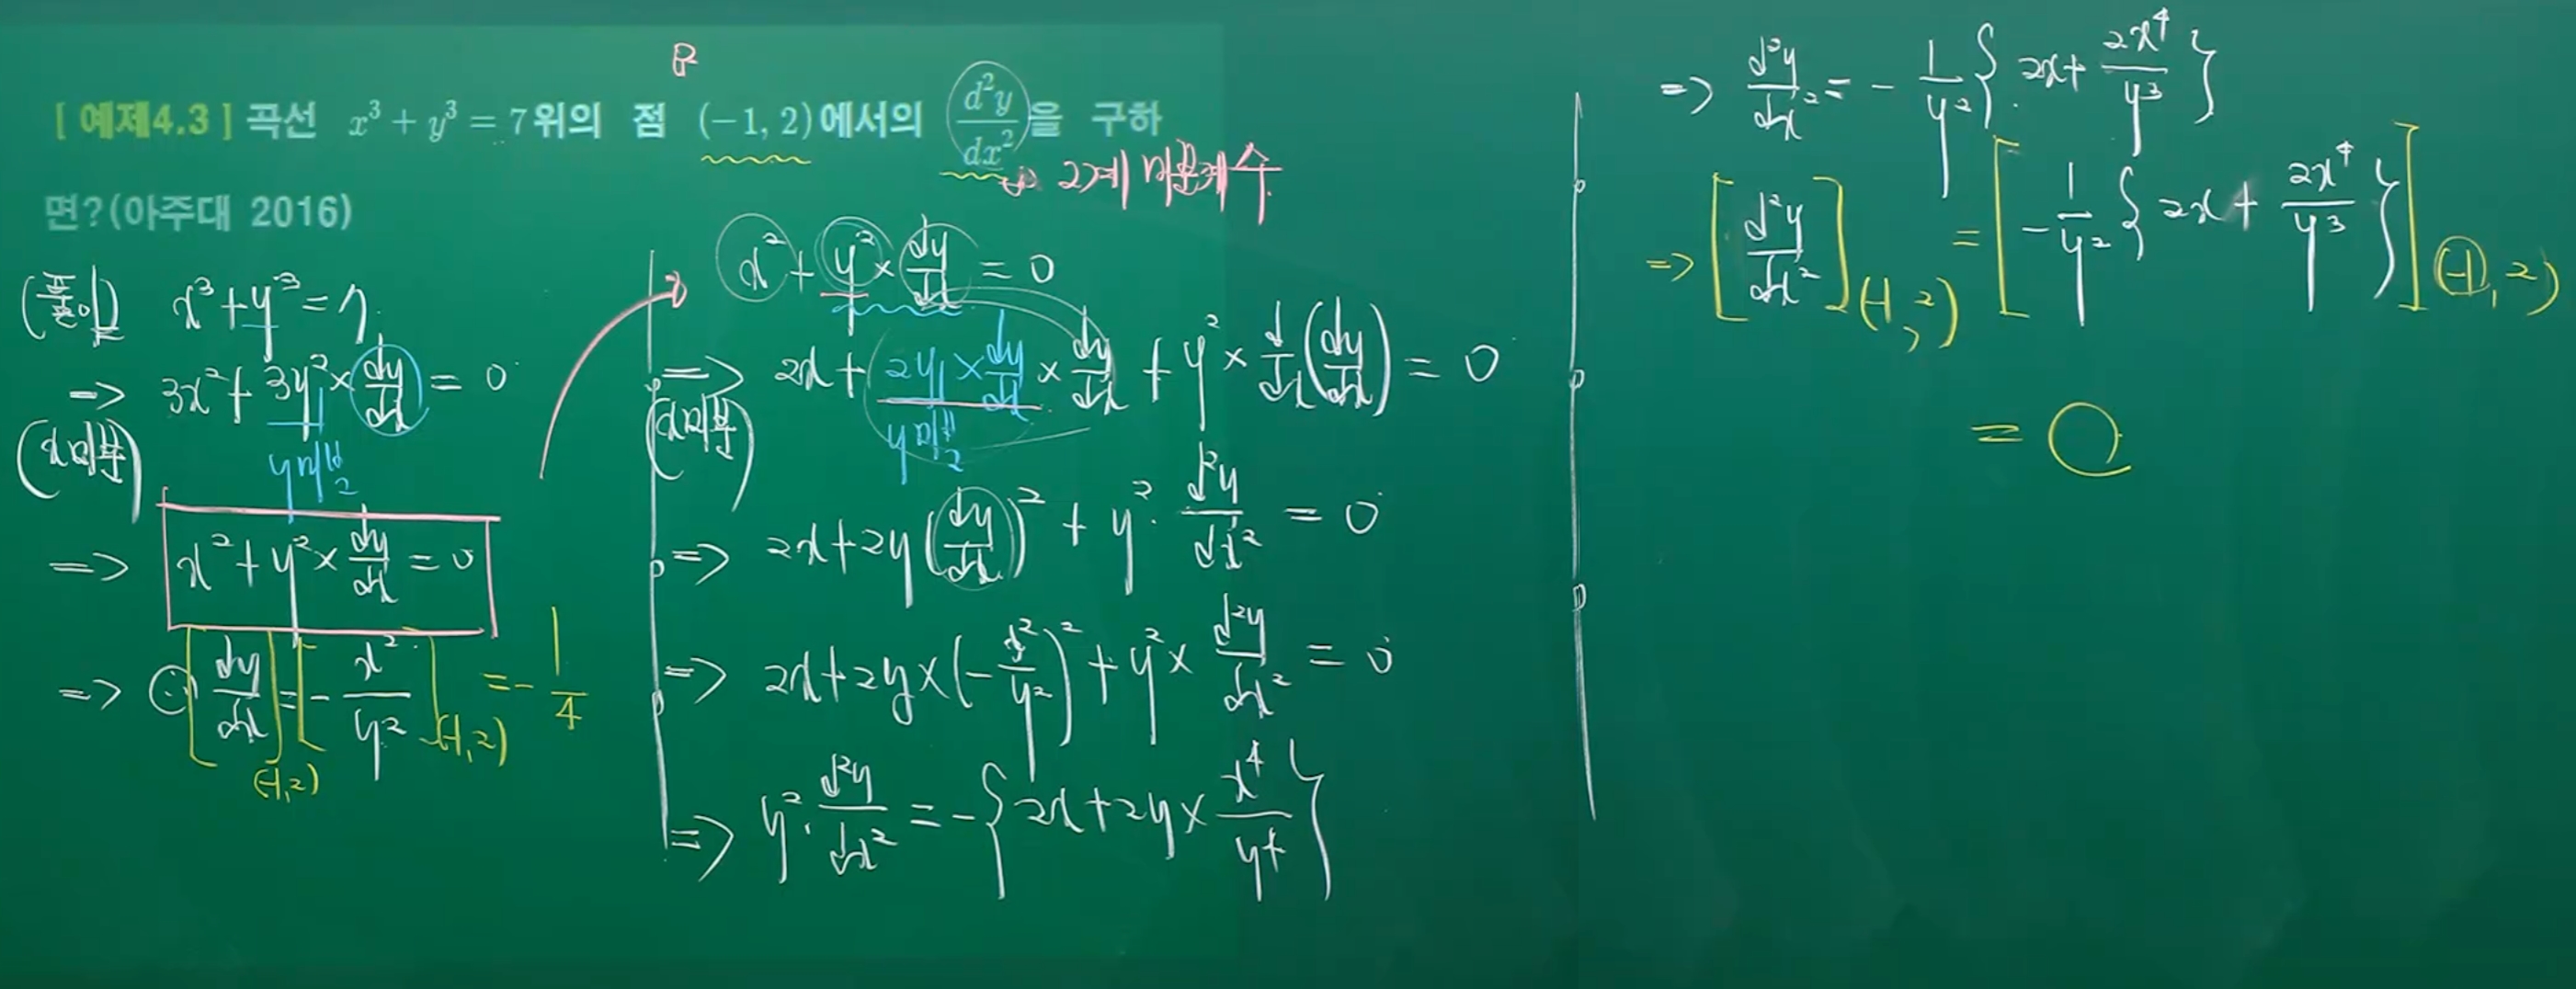 P
[ 예제4.3 ] 곡선 x³ + y³ = 7위의 점 (−1, 2)에서의 d²y/dx²을 구하
면?(아주대 2016)
⇒ 2계 미분계수
(풀이) x³+y³=7
⇒ 3x²+3y²×dy/dx = 0
(x미분)
y미분
2
⇒ x²+y²×dy/dx=0
⇒ ⊙ [dy/dx](-1,2) = [-x²/y²](-1,2) = -1/4
x²+y²×dy/dx = 0
⇒ 2x+2y×dy/dx×dy/dx+y²×d/dx(dy/dx) = 0
(x미분)
y미분
2
⇒ 2x+2y(dy/dx)²+y²·d²y/dx² = 0
⇒ 2x+2y×(-x²/y²)²+y²×d²y/dx² = 0
⇒ y²·d²y/dx² = -{2x+2y×x⁴/y⁴}
⇒ d²y/dx² = -1/y²{2x+2x⁴/y³}
⇒ [d²y/dx²](-1,2) = [-1/y²{2x+2x⁴/y³}](-1,2)
= ○